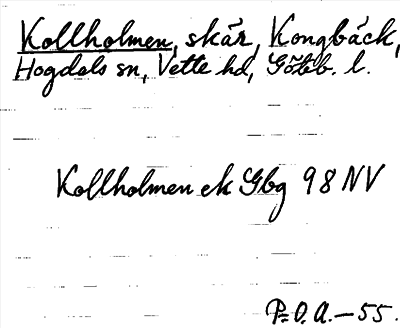 Kollholmen, skär, Kongbäck,
Hogdals sn, Vette hd, Göteb. l.
Kollholmen ek Gbg 98 NV
P.O.A.—55.